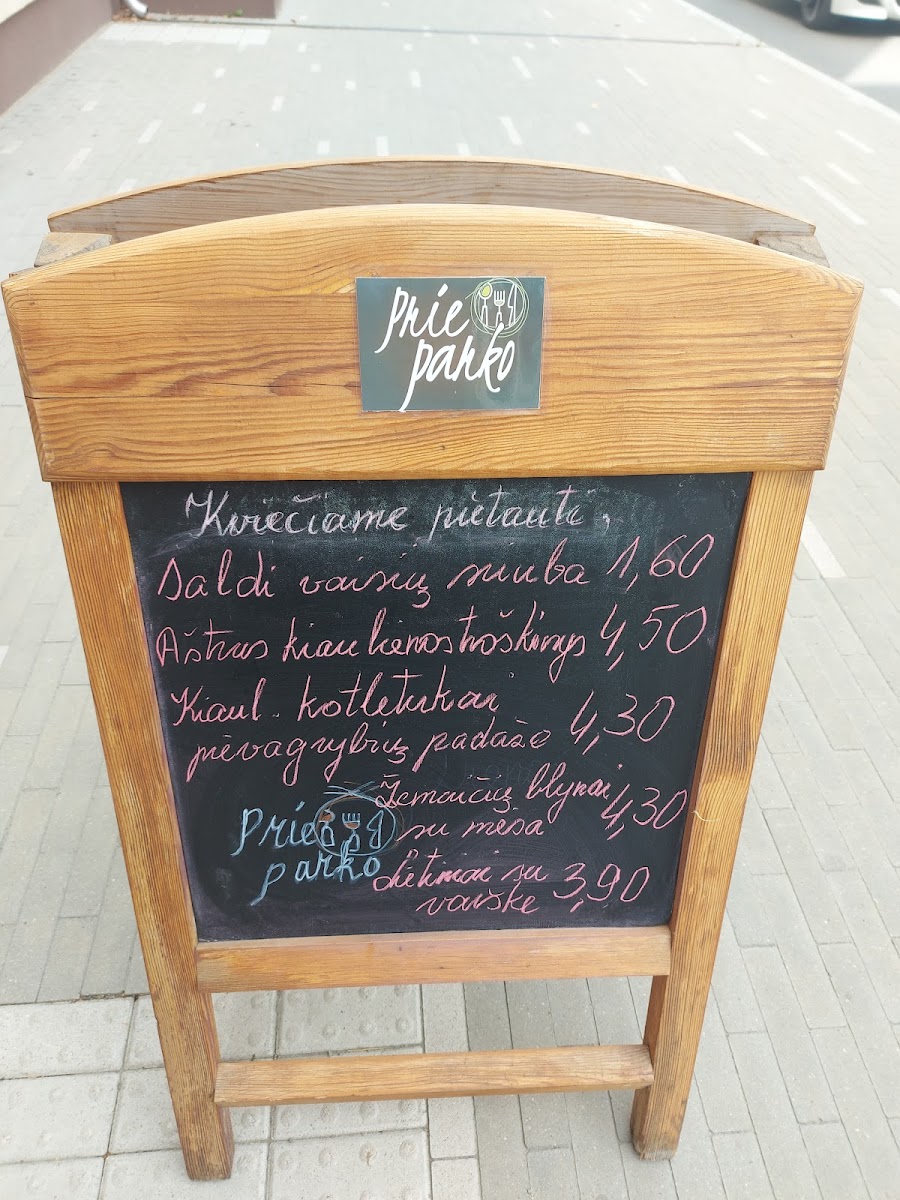 Prie
parko
Kviečiame pietauti,
Saldi vaisių sriuba 1,60
Aštrus kiaulienos troškinys 4,50
Kiaul. kotletukai
pievagrybių padaže 4,30
Žemaičių blynai
su mėsa 4,30
Lietiniai su
varške 3,90
Prie
parko